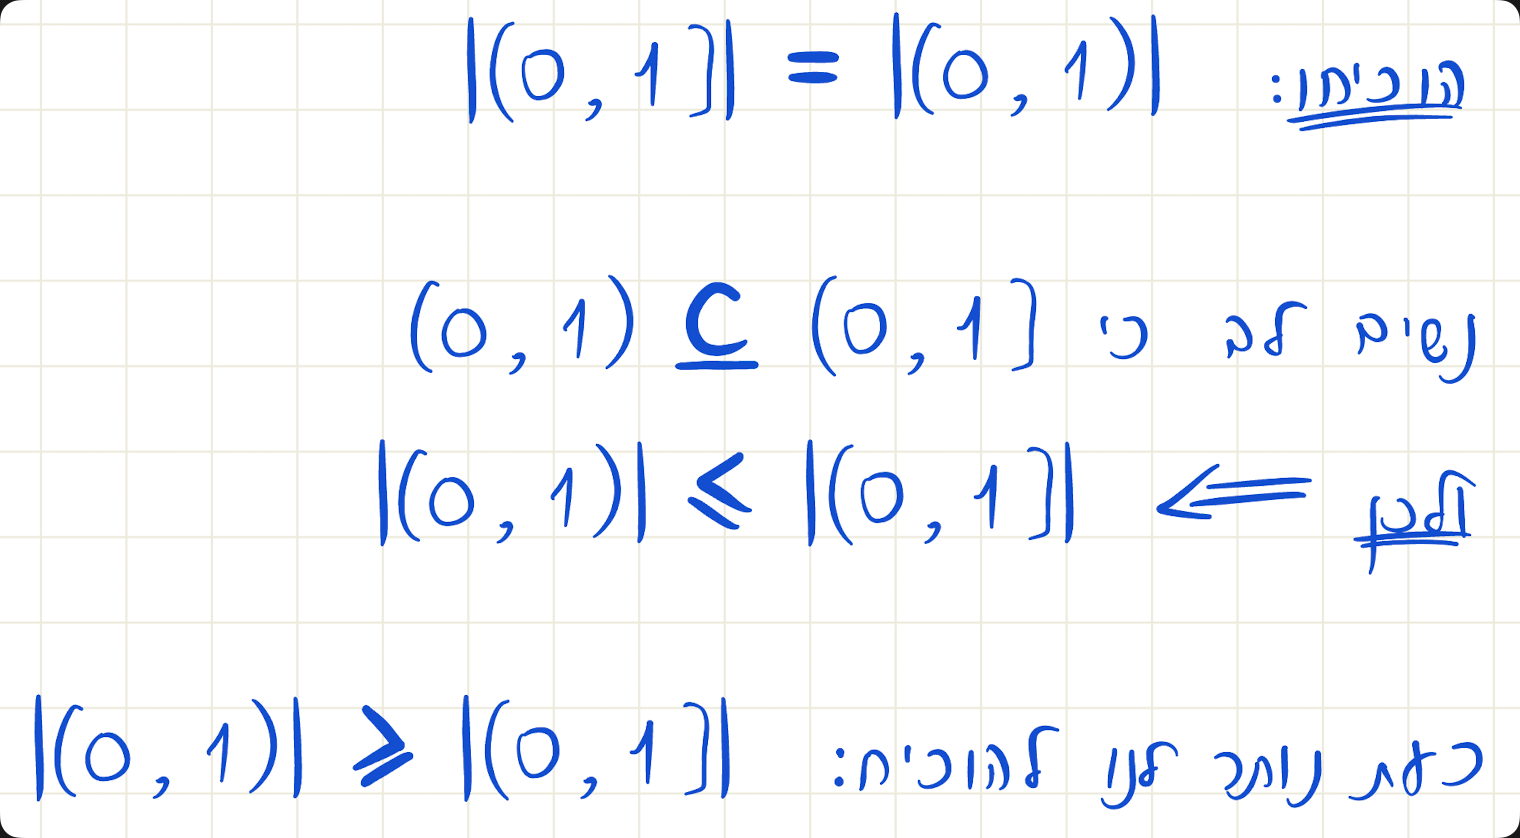 הוכיחו: |(0, 1]| = |(0, 1)|
נשים לב כי (0, 1) ⊆ (0, 1]
ולכן ⟸ |(0, 1)| ≤ |(0, 1]|
כעת נותר לנו להוכיח: |(0, 1)| ≥ |(0, 1]|